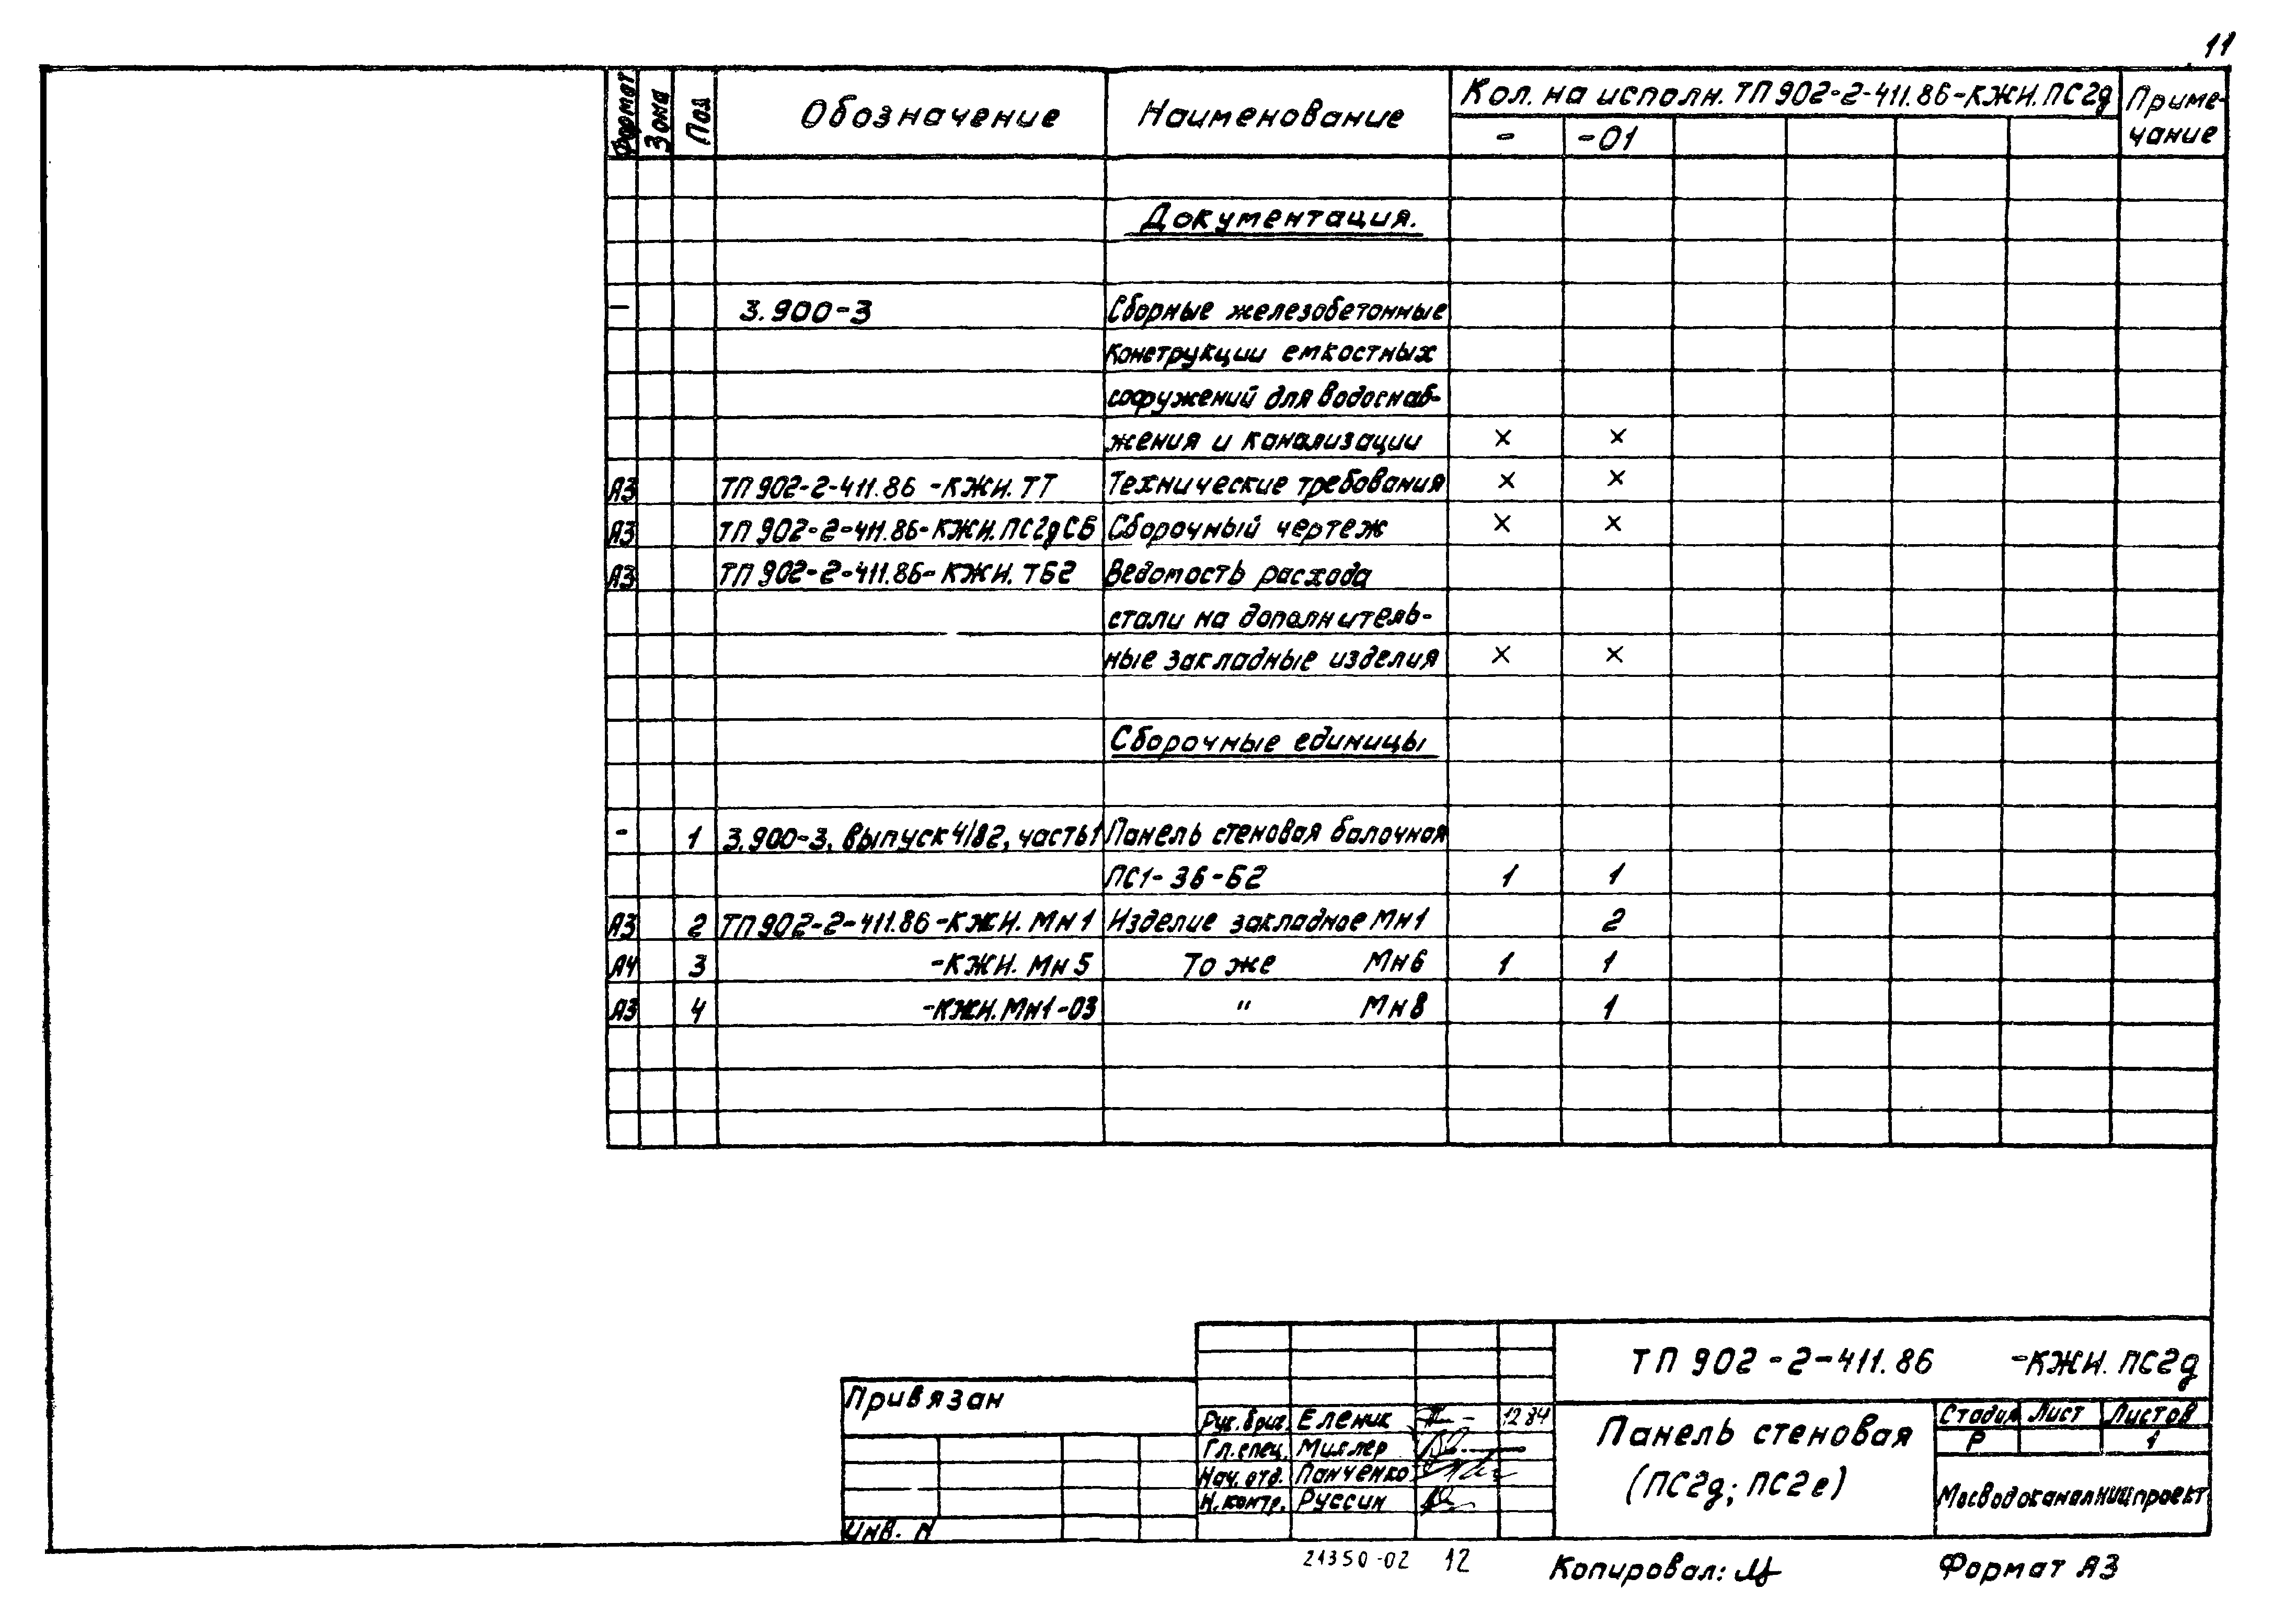 11
Формат Зона Поз Обозначение Наименование Кол. на исполн. ТП 902-2-411.86-КЖИ.ПС2д Приме-
- -01 чание
Документация.
- 3.900-3 Сборные железобетонные
конструкции емкостных
сооружений для водоснаб-
жения и канализации × ×
А3 ТП 902-2-411.86 -КЖИ. ТТ Технические требования × ×
А3 ТП 902-2-411.86-КЖИ.ПС2дСБ Сборочный чертеж × ×
А3 ТП 902-2-411.86-КЖИ. ТБ2 Ведомость расхода
стали на дополнитель-
ные закладные изделия × ×
Сборочные единицы
- 1 3.900-3, выпуск 4/82, часть1 Панель стеновая балочная
ПС1-36-Б2 1 1
А3 2 ТП 902-2-411.86-КЖИ. Мн1 Изделие закладное Мн1 2
А4 3 -КЖИ. Мн5 То же Мн6 1 1
А3 4 -КЖИ.Мн1-03 " Мн8 1
ТП 902-2-411.86 -КЖИ. ПС2д
Привязан
Рук. бриг. Еленик 12 84
Гл. спец. Миллер
Нач. отд. Панченко
Н. контр. Руссин
Инв. N
Панель стеновая
(ПС2д; ПС2е)
Стадия Лист Листов
Р 1
Мосводоканалниипроект
21350-02 12
Копировал: Формат А3